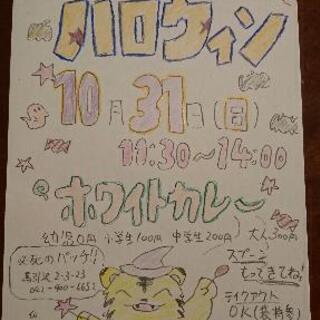 ハロウィン
10月31日(日)
11:30~14:00
ホワイトカレー
幼児0円 小学生100円 中学生200円 大人300円
スプーン
もってきてね。
テイクアウト
OK(容器
必死のパッチ!!
2-3-23